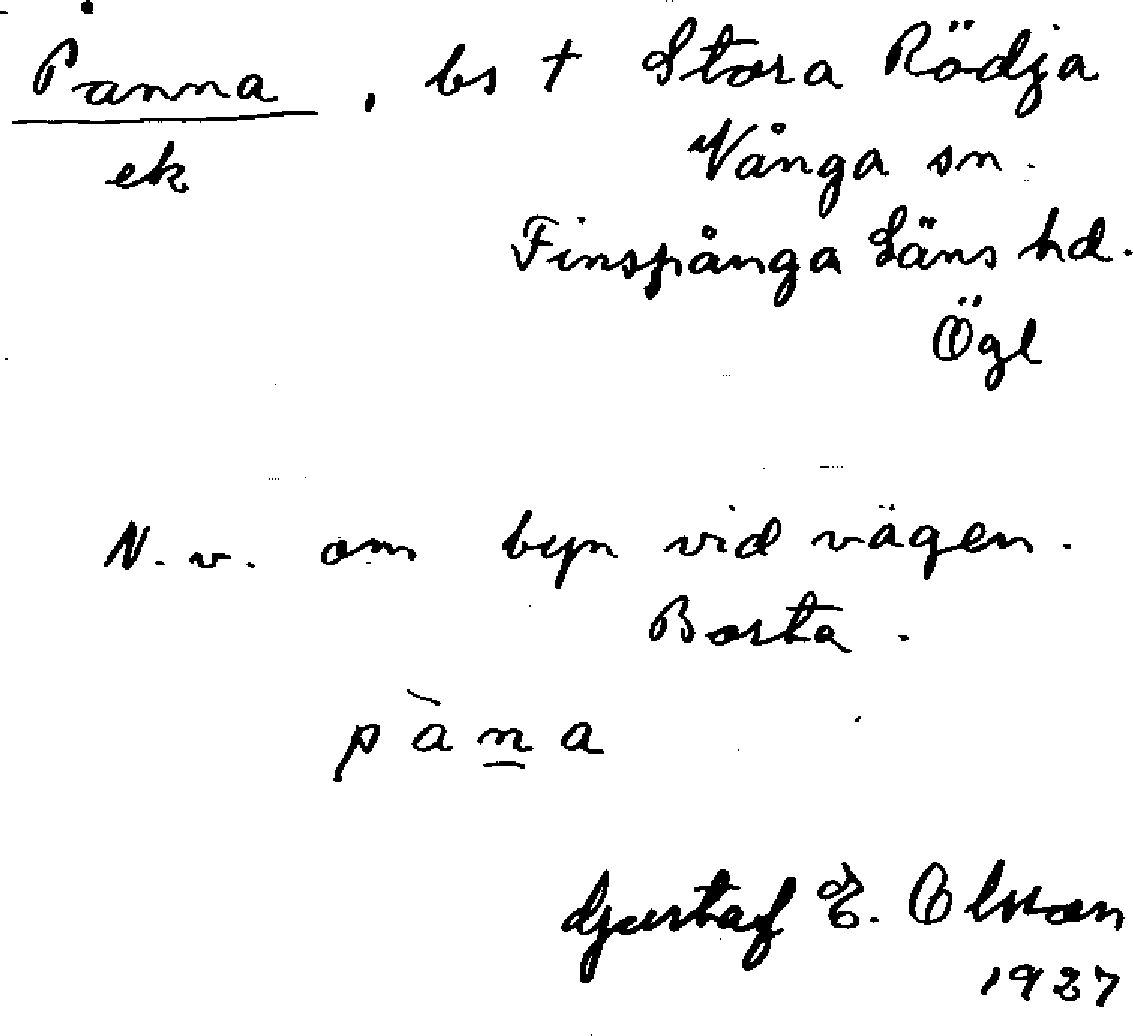 Panna, bs † Stora Rödja
ek Vånga sn.
Finspånga Läns hd.
Ögl
N. v. om byn vid vägen.
Borta.
pàna
Gustaf E. Olsson
1927